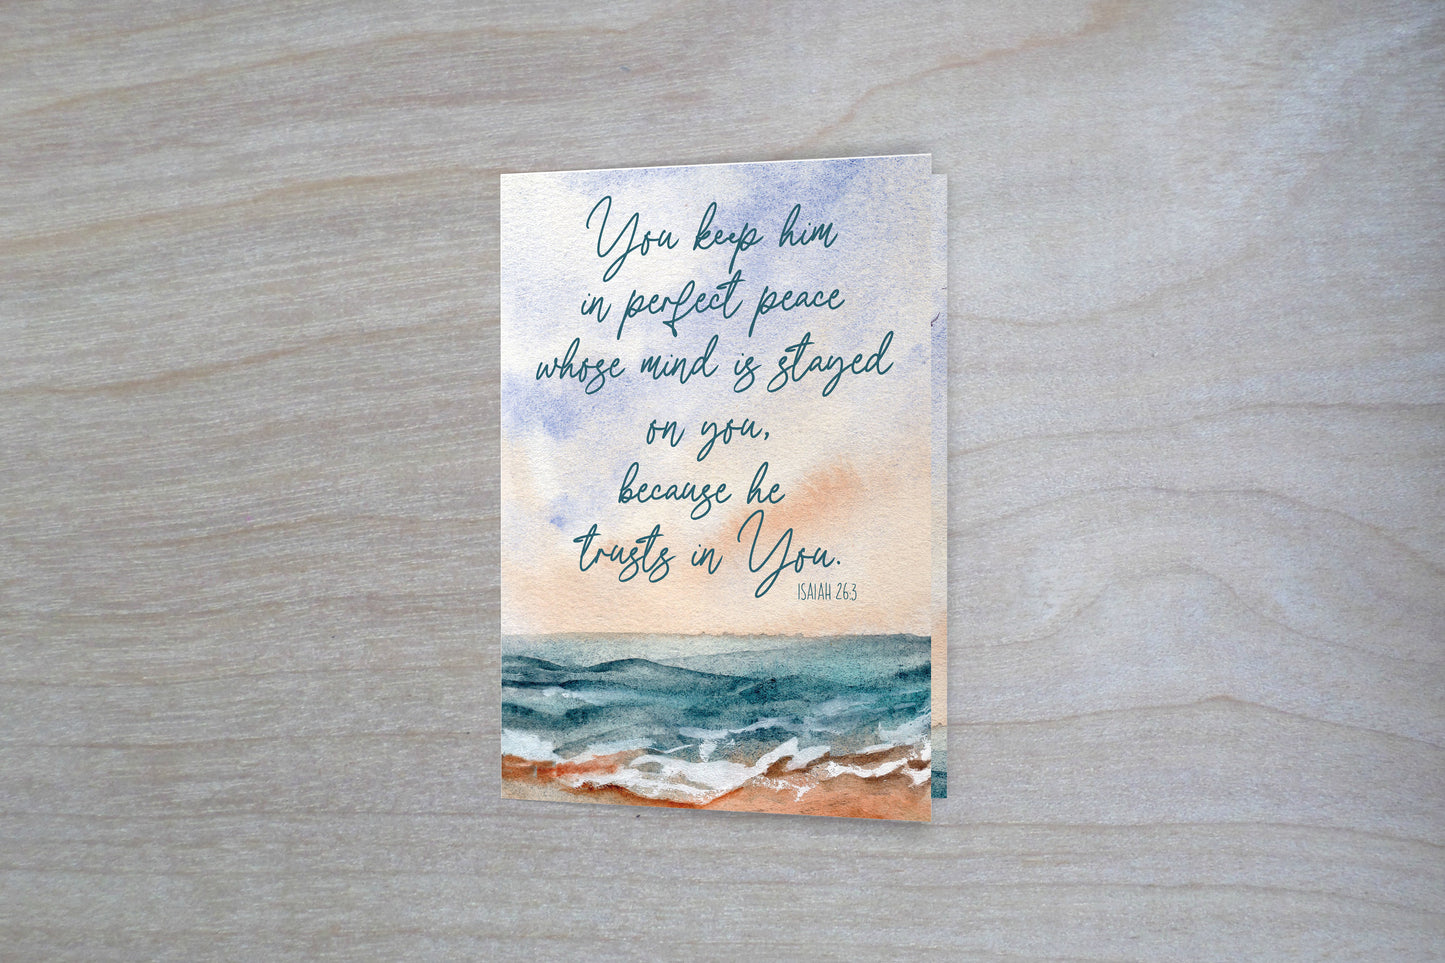 You keep him
in perfect peace
whose mind is stayed
on you,
because he
trusts in You.
ISAIAH 26:3